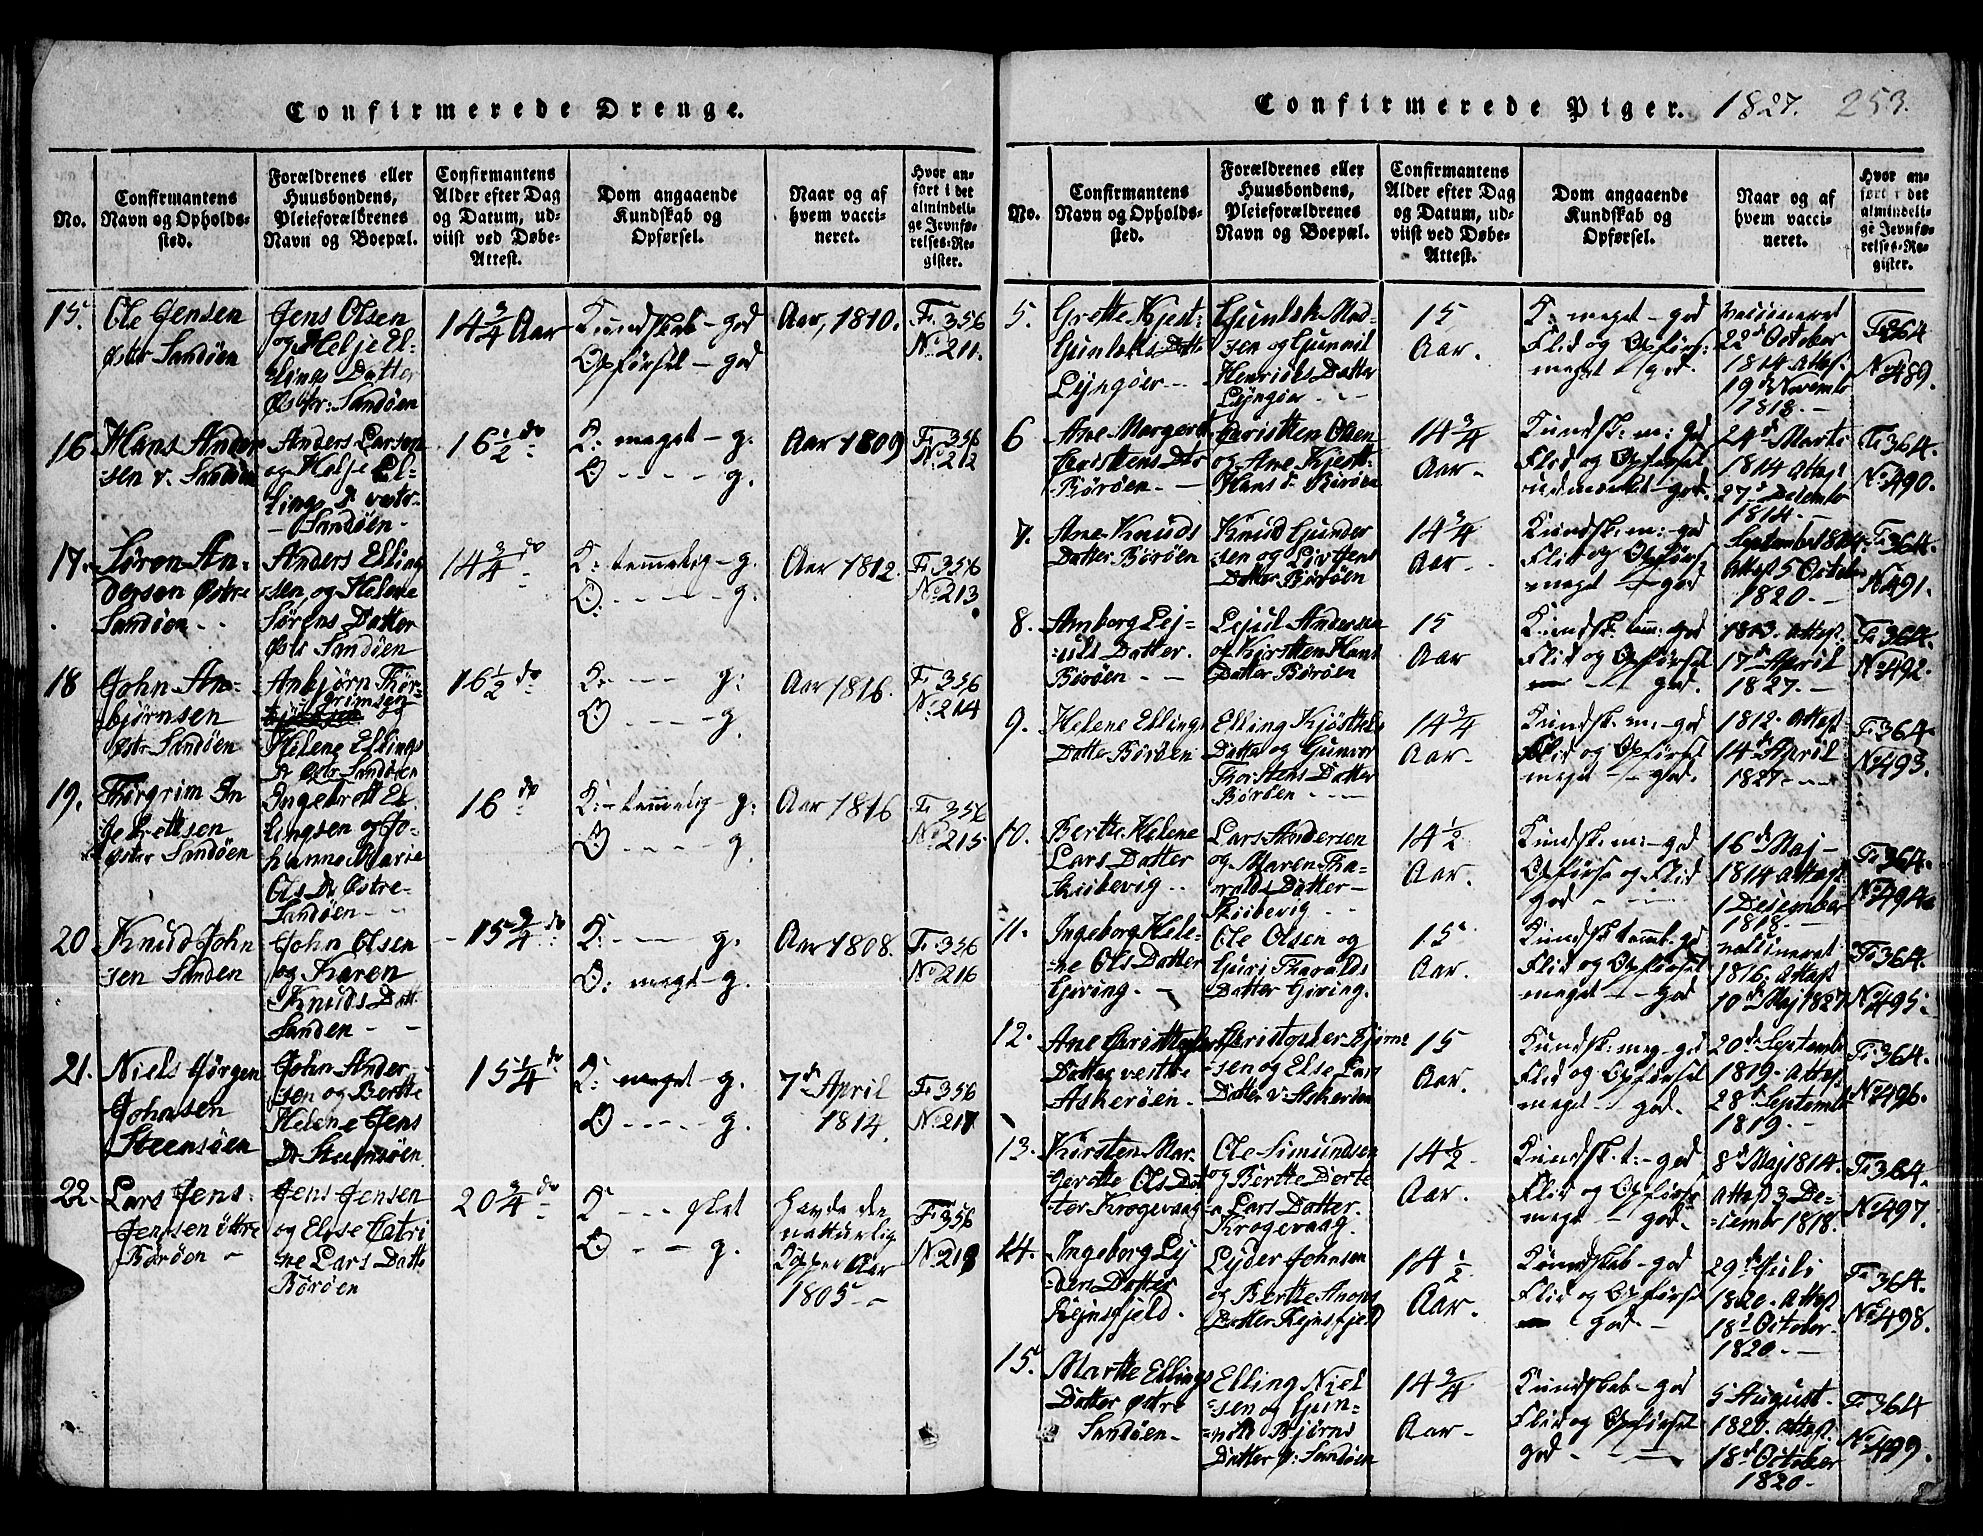 Confirmerede Drenge.
No.
Confirmantens
Navn og Opholds-
sted.
Forældrenes eller
Huusbondens,
Pleieforældrenes
Navn og Boepæl.
Confirmantens
Alder efter Dag
og Datum, ud-
viist ved Døbe-
Attest.
Dom angaaende
Kundskab og
Opførsel.
Naar og af
hvem vacci-
neret.
Hvor an-
ført i det
almindeli-
ge Jevnfø-
relses-Re-
gister.
15.
Ole Jensen
Østr Sandöen
Jens Olsen
og Helje El-
lings Datter
Østr: Sandöen
14 3/4 Aar
Kundskab - god
Opförsel - god
Aar, 1810.
F. 356
No. 211.
16
Hans Ander
sen v. Sandöen
Anders Larsen
og Helje El-
lings d. vestr-
- Sandöen -
16 1/2 do
K: meget - g:
O - - - - g.
Aar 1809
F. 356
No. 212
17.
Sören An-
dersen Østre
Sandöen - -
Anders Elling
sen og Helene
Sörens Datter
Østr Sandöen
14 3/4 do
K: temelig - g.
O: - - - - g:
Aar 1812.
F. 356
No. 213
18
John An-
björnsen
østr Sandöen
Anbjörn Thor-
grimsen
og
Helene Ellings
Dr Østr Sandöen
16 1/2 do
K: - - - g:
O - - - - g.
Aar 1816.
F. 356
No. 214
19.
Thorgrim In
gebrettsen
øster Sandöen
Ingebrett El-
lingsen og Jo-
hanne Marie
Ols Dr Østre-
Sandöen - -
16 do
K: - temelig - g:
O - - - - g.
Aar 1816
F. 356
No. 215
20
Knud John
sen Sanden
John Olsen
og Karen
Knuds Datt.
Sanden - -
15 3/4 do
K: - - - g.
O: meget - g.
Aar 1808.
F. 356
No. 216
21.
Niels Jörgen
Johnsen
Steensöen
John Ander-
sen og Berthe
Helene Jens
Dr Steensöen
15 1/4 do
K: meget - g.
O - - - - g.
7d April
1814.
F. 356
No. 217
22.
Lars Jens
Jensen östre
Boröen -
Jens Jensen
og Else Catri
ne Lars Datte
Boröen
20 3/4 do
K - - - slet
O - - g.
havde de
naturlig
Kopper Aar
1805 - -
F. 356
No. 218
Confirmerede Piger. 1827. 253.
No.
Confirmantens
Navn og Opholds-
sted.
Forældrenes eller
Huusbondens,
Pleieforældrenes
Navn og Boepæl.
Confirmantens
Alder efter Dag
og Datum, ud-
viist ved Døbe-
Attest.
Dom angaaende
Kundskab og
Opførsel.
Naar og af
hvem vacci-
neret.
Hvor an-
ført i det
almindeli-
ge Jevnfø-
relses-Re-
gister.
5.
Grethe Kjest:
Gunleks Datte
Lyngöer - -
Gunlek Mad-
sen og Gunnil
Henriks Datter
Lyngöer - - -
15
Aar.
K: meget - god
Flid og Opförs:
meget - god.
vaccineret
22d October
1814 Attest
19d Novembr
1818. -
F. 364
No. 489.
6
Ane Margret
Cristens Dtr
Boröen. -
Christen Olsen
og Ane Kjest:
Hans d. Boröen
14 3/4
Aar -
Kundsk: m: god
Flid og Opförsel
udmerket - god.
24d Marts
1814 Attest
27d Decembr
1814. -
F. 364.
No. 490.
7.
Ane Knuds
Datter Boröen
Knud Gunder
sen og Liv Jens
Datter Boröen
14 3/4
Aar - -
Kundsk: m: - god
Flid og Opförs
meget - god
September 1814.
Attest 5 October
1820. -
F. 364.
No. 491.
8.
Amborg Lej-
Datter.
Boröen - -
Andersen
og Kjersten Hans
Datter Boröen
15
Aar
Kundsk: tem: god
Flid og Opförsel
- - god.
1813. Attest
17d April
1827. -
F. 364.
No. 492.
9.
Helene Elling
Datte Boröen
Elling Kjöstels
Datter og Gunvor
Thorstens Datter
Boröen - - -
14 3/4
Aar. -
Kundsk: m: - god
Flid og Opförsel
meget - - god.
1812. Attest
14d April
1827. - - -
F. 364.
No. 493.
10.
Berthe Helene
Lars Datter
Skiibevig - -
Lars Andersen
og Maren Tha-
ralds Datter -
Skiibevig - -
14 1/2
Aar.
Kundsk: m: - god
Opförse og Flid
god - - - -
16d Maj -
1814 Attest
1 Desember
1818. -
F. 364.
No. 494.
11.
Ingeborg Hele-
ne Ols Datter
Giving. -
Ole Olsen og
Guri Tharalds
Datter Giving.
15
Aar.
Kundsk temb: god
Flid og Opförsel
meget - - god
vaccineret
1816. Attest
10d Maj 1827
F. 364.
No. 495.
12.
Ane Christophers
Datter vestre
Askeröen -
Christopher Bjørn:
sen og Else Lars
Datter v: Askeröen
15
Aar.
Kundsk: meg - god
Flid og Opförsel
meget - god.
20d Septembr
1819. Attest
28d Septembr
1819. -
F. 364.
No. 496.
13.
Kirsten Mar-
grethe Ols Dat
ter Krogevaag
Ole Simundsen
og Berthe Dorte
a Lars Datter.
Krogevaag
14 1/2
Aar.
Kundsk. t: - god
Flid og Opförse
meget - god.
8d Maj 1814.
Attest 3 De-
sembr 1818.
F. 364.
No. 497.
14.
Ingeborg Lej
ders Datter
Rejnsfjeld.
Lejder Johnsen
og Berthe Arons
Datter Rejnsfjeld
14 1/2
Aar.
Kundskab - god
Flid og Opförsel
- god -
29d Juli
1820. Attest
18d October
1820. -
F. 364.
No. 498.
15.
Marthe Ellings
Datter Østre
Sandöen -
Elling Niel
sen og Gun-
Bjørns
Datter ø: Sandöen
14 3/4
Aar -
Kundskab - god
Flid og Opförsel
god - - -
5 August
1820. Attest
18d October
1820 -
F. 364
No. 499.